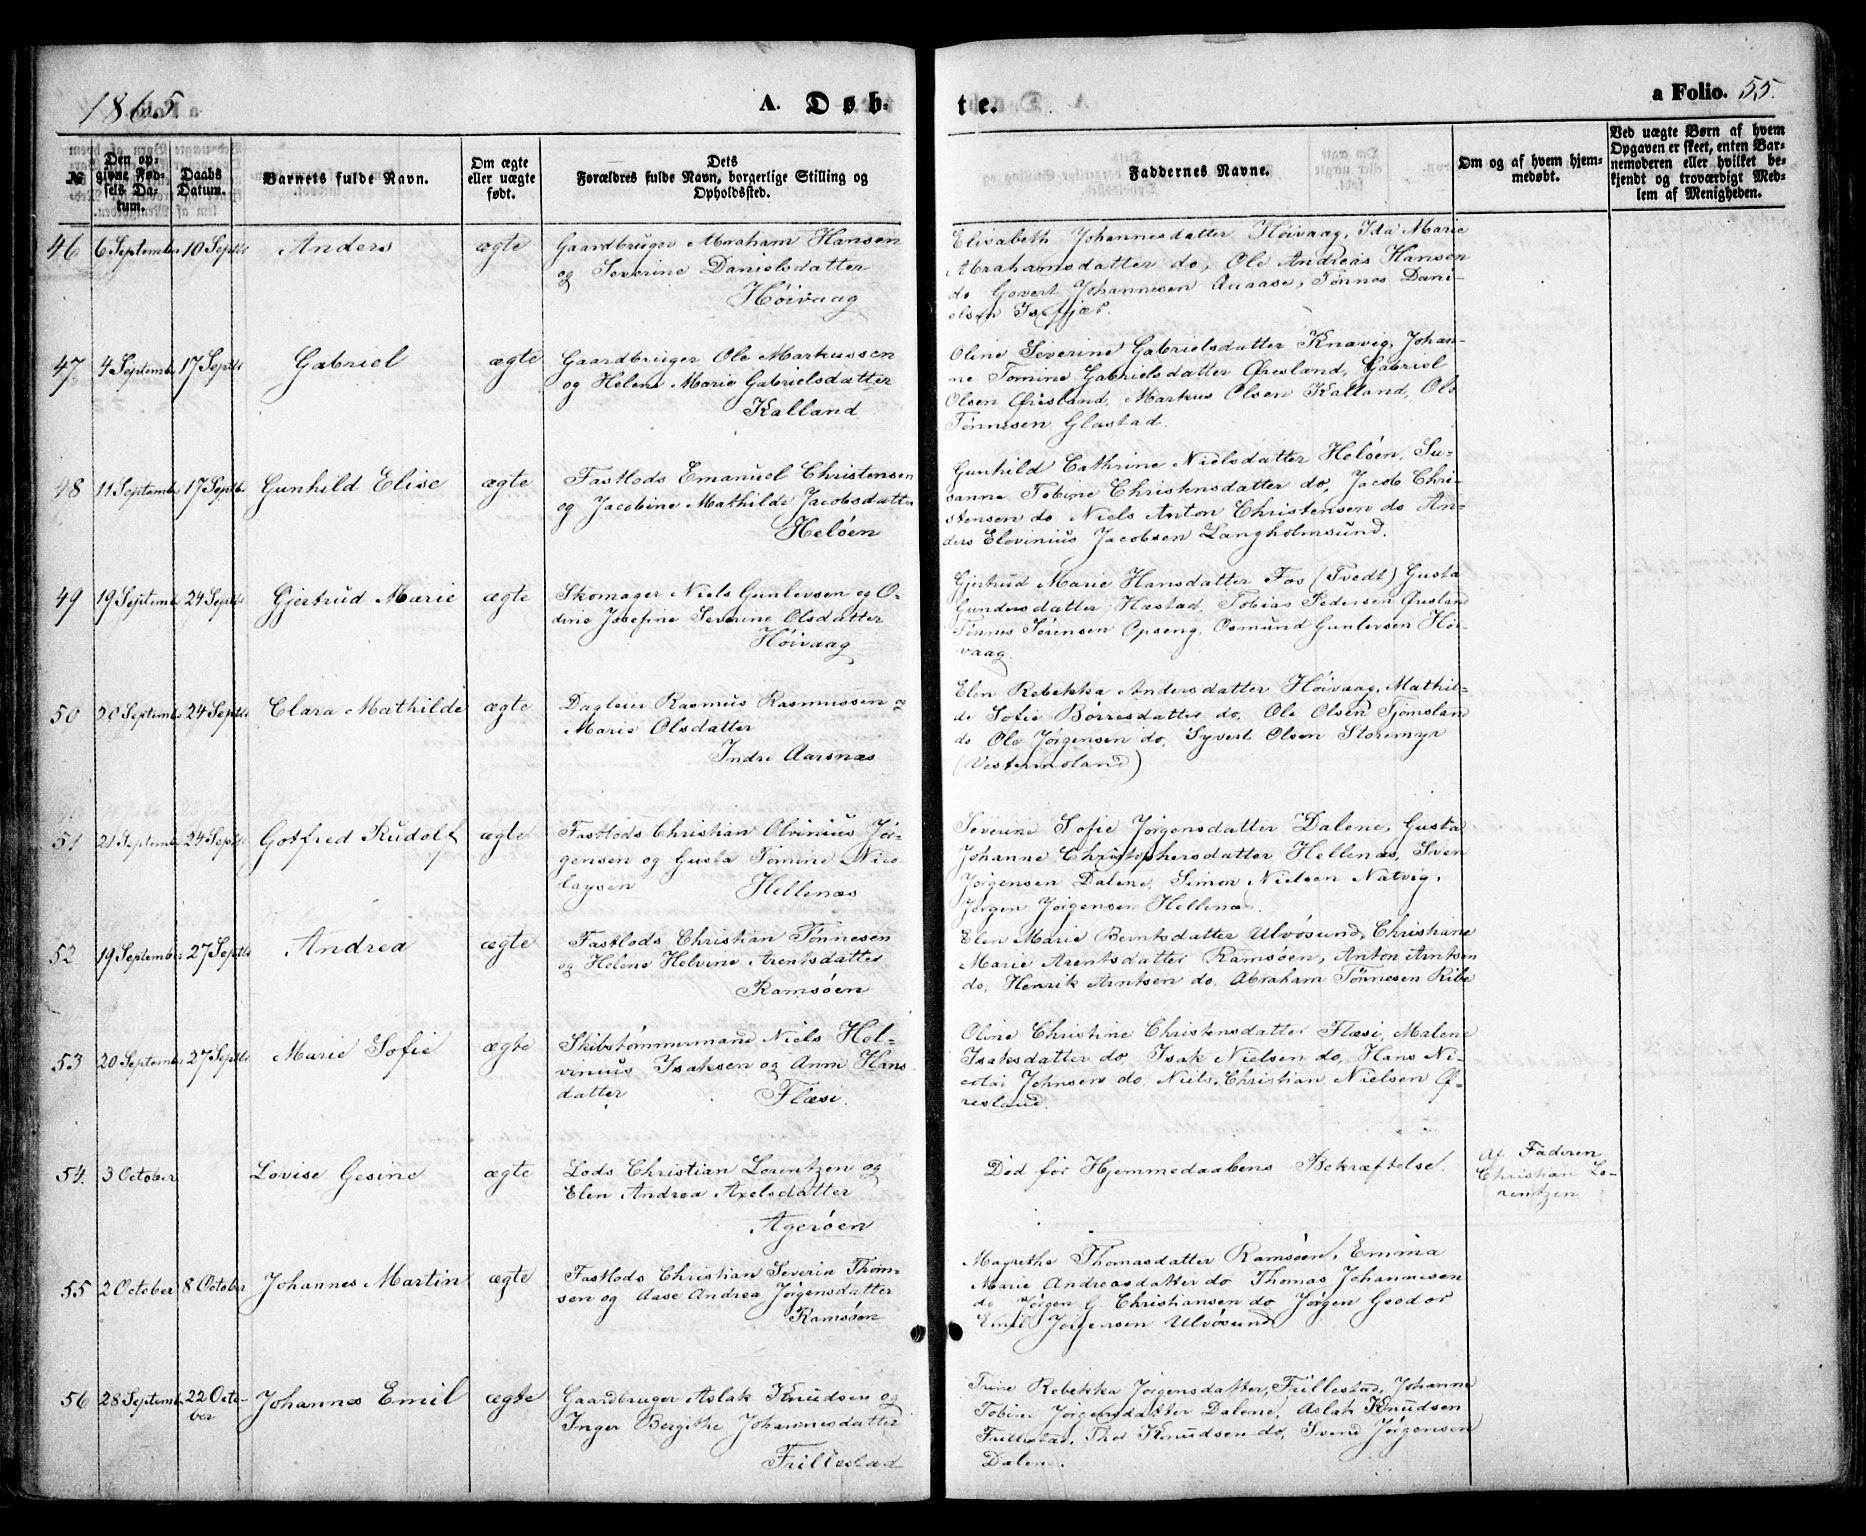 1865
A. Døb-
te.
a Folio. 55.
№
Den op-
givne Fød-
sels Da-
tum.
Daabs
Datum.
Barnets fulde Navn.
Om ægte
eller uægte
født.
Dets
Forældres fulde Navn, borgerlige Stilling og
Opholdssted.
Faddernes Navne.
Om og af hvem hjem-
medøbt.
Ved uægte Børn af hvem
Opgaven er skeet, enten Bar-
nemoderen eller hvilket be-
kjendt og troværdigt Med-
lem af Menigheden.
46 6 September 10 Septbr Anders ægte Gaardbruger Abraham Hansen
og Severine Danielsdatter
Høivaag
Elisabeth Johannesdatter Høivaag, Ida Marie
Abrahamsdatter do, Ole Andreas Hansen
do Govert Johannesen Auaase, Tønnes Dani-
elsen Isefjær.
47 4 Septembr 17 Septbr Gabriel ægte Gaardbruger Ole Markussen
og Helene Marie Gabrielsdatter
Kalland
Oline Severine Gabrielsdatter Knavig, Johan-
ne Tomine Gabrielsdatter Øresland, Gabriel
Olsen Øresland, Markus Olsen Kalland, Ole
Tønnesen Glastad.
48 11 Septembr 17 Septbr Gunhild Elise ægte Fastlods Emanuel Christensen
og Jacobine Mathilde Jacobsdatter
Heløen
Gunhild Cathrine Nielsdatter Heløen, Su-
sanne Tobine Christensdatter do, Jacob Chri-
stensen do Niels Anton Christensen do An-
ders Elovinius Jacobsen Langholmsund.
49 19 Septembr 24 Septbr Gjertrud Marie ægte Skomager Niels Gunlevsen og O-
dine Josefine Severine Olsdatter
Høivaag
Gjertrud Marie Hansdatter Fos (Tvedt) Gusta
Gundersdatter Hæstad, Tobias Pedersen Øresland
Tønnes Sørensen Opseng, Osmund Gunlevsen Høi-
vaag.
50 20 Septembr 24 Septbr Clara Mathilde ægte Dagleier Rasmus Rasmussen og
Marie Olsdatter
Indre Aarsnæs
Elen Rebekka Andersdatter Høivaag, Mathil-
de Sofie Børresdatter do, Ole Olsen Tjomsland
do Ole Jørgensen do, Syvert Olsen Storemyr
(Vestermoland)
51 21 Septembr 24 Septbr Gotfred Rudolf ægte Fastlods Christian Olvinius Jør-
gensen og Gusta Tomine Nico
laysen Hellenæs
Severine Sofie Jørgensdatter Dalene, Gusta
Johanne Christophersdatter Hellenæs, Sven
Jørgensen Dalene, Simon Nielsen Natvig,
Jørgen Jørgensen Hellenæs.
52 19 September 27 Septbr Andrea ægte Fastlods Christian Tønnesen
og Helene Helvine Arentsdatter
Ramsøen
Elen Marie Berntsdatter Ulvøsund, Christiane
Marie Arentsdatter Ramsøen, Anton Arntsen
do, Henrik Arntsen do, Abraham Tønnesen Ribe
53 20 Septembr 27 Septbr Marie Sofie ægte Skibstømmermand Niels Hel-
vinius Isaksen og Anne Hans
datter Flæsi.
Oline Christine Christensdatter Flæsi, Malene
Isaksdatter do, Isak Nielsen do, Hans Ni-
colai Johnsen do, Niels Christian Nielsen Ø-
resland.
54. 3 October Lovise Gesine ægte Lods Christian Lorentzen og
Elen Andrea Axelsdatter
Agerøen
Død før Hjemmedaabens Bekræftelse.
Af Faderen
Christian Lo-
rentzen
55 2 October 8 October Johannes Martin ægte Fastlods Christian Severin Thom-
sen og Aase Andrea Jørgensdatter
Ramsøen
Magrethe Thomasdatter Ramsøen, Emma
Marie Andreasdatter do Thomas Johannesen
do Jørgen G. Christiansen do Jørgen Geodor
Emil Jørgensen Ulvøsund
56 28 Septembr 22 Octo-
ber
Johannes Emil ægte Gaardbruger Aslak Knudsen og
Inger Bergithe Johannesdatter
Frillestad
Trine Rebekka Jørgensdatter, Frillestad, Johanne
Tobine Jørgensdatter Dalene, Aslak Knudsen
Frillestad, Thor Knudsen do, Svend Jørgensen
Dalene.